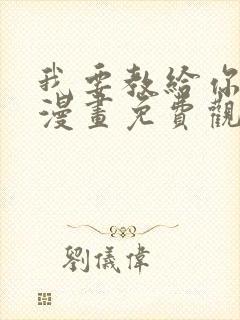 我要教給你
漫畫免費觀
劉儀偉